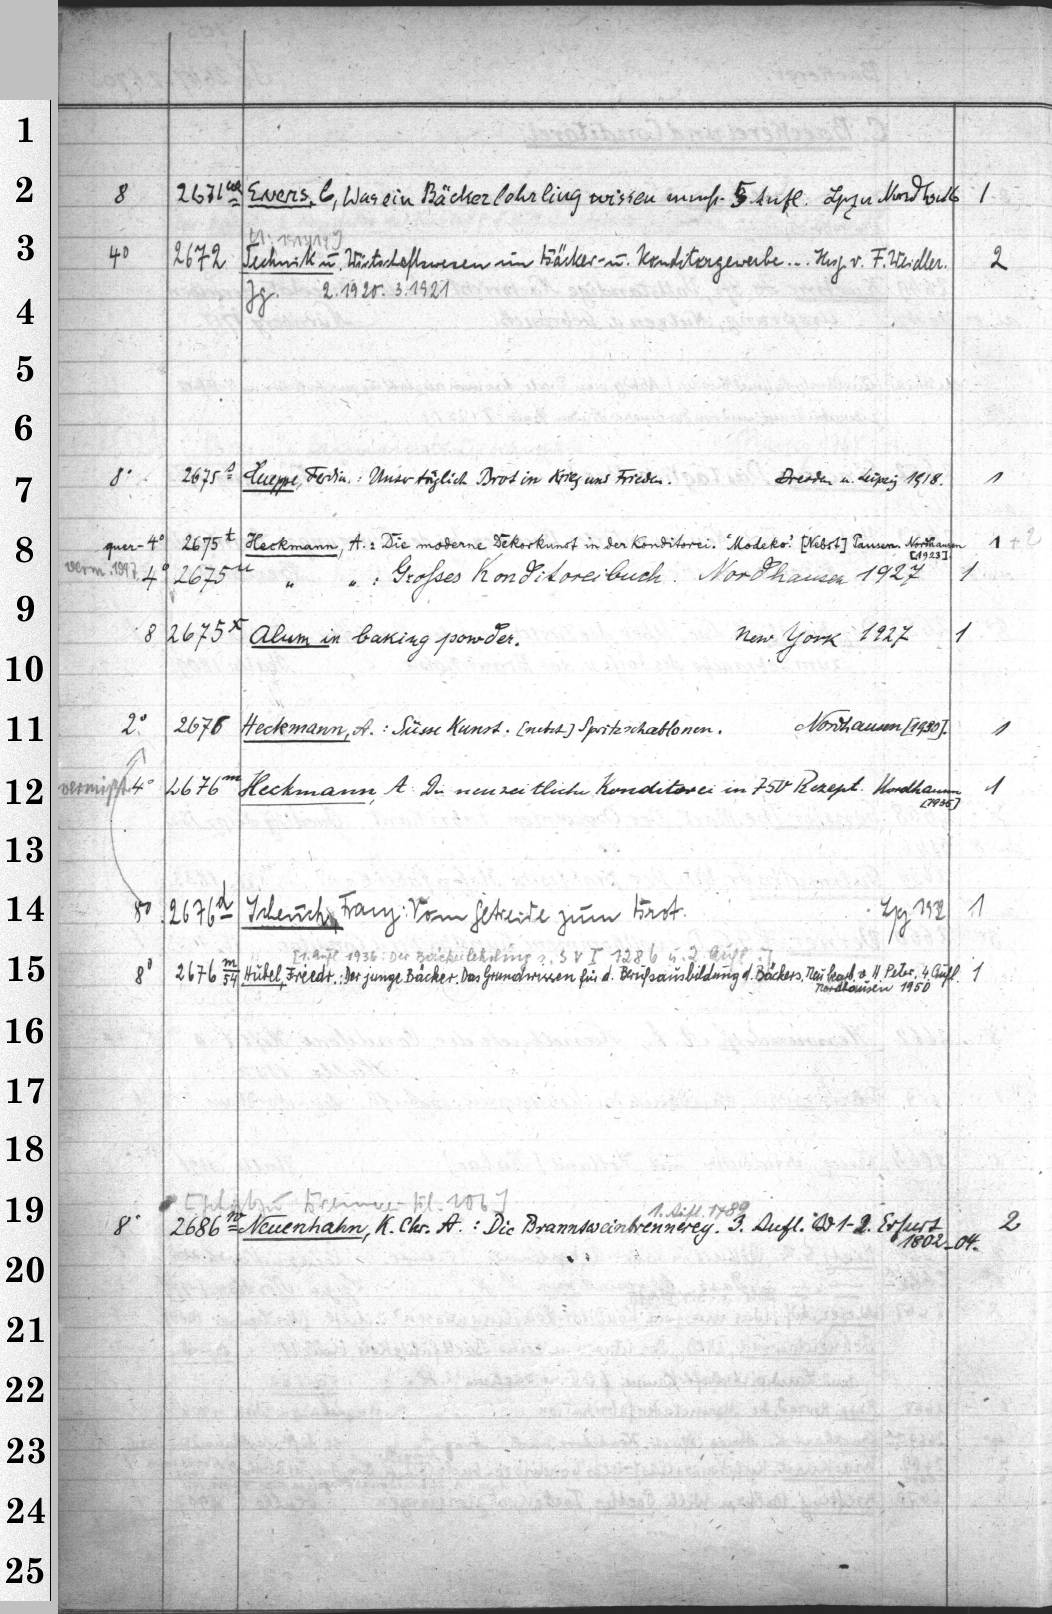 1
2 8 2671 Evers, C, Was ein Bäckerlehrling wissen muss. 5. Aufl. Lpz u Nordhsn 1
[1: 1919]
3 4° 2672 Technik u. Wirtschaftswesen im Bäcker- u. Konditorgewerbe... Hrsg. v. F. Weidler. 2
Jg. 2.1920. 3.1921
4
5
6
7 8° 2675 s Hueppe, Ferdin.: Unser täglich Brot in Krieg und Frieden. Dresden u. Leipzig 1918. 1
8 quer-4° 2675 t Heckmann, A.: Die moderne Dekorkunst in der Konditorei. "Modeko". [Nebst] Pausen. Nordhausen 1 + 2
[1923]
verm. 1997 4° 2675 u " ": Grosses Konditoreibuch. Nordhausen 1927 1
9
8 2675 x Alum in baking powder. New York 1927 1
10
11 2° 2676 Heckmann, A.: Süsse Kunst. [nebst] Spritzschablonen. Nordhausen [1930]. 1
12 vermisst 4° 2676 m Heckmann, A. Die neuzeitliche Konditorei in 750 Rezept. Nordhausen 1
[1936]
13
14 8° 2676 d Scheuch, Franz: Vom Getreide zum Brot. Lpz 1
[1. Aufl 1936: Der Bäckerlehrling s. S V I 1286 u. 2. Aufl.]
15 8° 2676 m/54 Hübel, Friedr.: Der junge Bäcker. Das Grundwissen für d. Berufsausbildung d. Bäckers. Neu bearb v. H Peter. 4 Aufl. 1
Nordhausen 1950
16
17
18
19 1. Aufl. 1789
8° 2686 n Neuenhahn, K. Chr. A.: Die Branntweinbrennerey. 3. Aufl. Bd 1-2. Erfurt 2
1802-04.
20
21
22
23
24
25